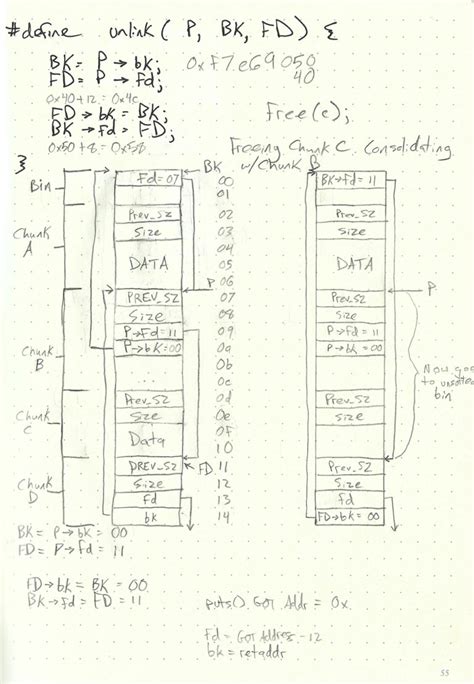 #define unlink( P, BK, FD) {
BK= P→bk; 0xF7e69050
FD= P→fd; 40
0x40+12 = 0x4c
FD→bk= BK; Free(c);
BK→fd= FD;
0x50+8 = 0x58
Freeing Chunk C. Consolidating
w/Chunk B
}
BK
Bin Fd=07 00 BK→fd=11
01
Chunk A
Prev_SZ 02 Prev_SZ
Size 03 Size
04
DATA 05 DATA
P 06 P
PREV_SZ 07 Prev_SZ
Size 08 Size
P→Fd=11 09 P→fd=11
P→bk=00 0a P→bk=00
Chunk B
0b
0c
Now goes
to unsorted
bin
Prev_SZ 0d Prev_SZ
Size 0e Size
Chunk C
Data 0F
10
PREV_SZ FD 11 Prev_SZ
Size 12 Size
Chunk D
fd 13 fd
bk 14 FD→bk=00
BK= P→bk= 00
FD= P→fd= 11
FD→bk= BK= 00
BK→fd= FD= 11
puts() GOT Addr = 0x
fd= GOT Address -12
bk= retaddr
55